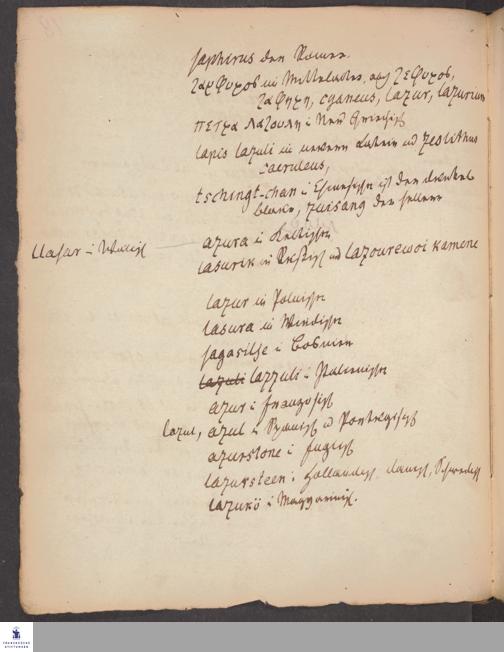 saphirus den Römer.
ζαφυρος im Mittelalter, auch ζεφυρος,
ζαφηρη, cyaneus, lazur, lazurium
πετρα λαζουλη i Neu Griechisch
lapis lazuli im neuern Latein und zeolithus
caeruleus,
tschingt-chan i Chinesischen ist der dunkel
blaue, zuisang der hellere
azura i Keltischen
lasurik im Russisch und lazourewoi kamene
lazur im Polnischen
lasura im Windischen
jagasilje i Bosnien
lazuli lazzuli i Italienischen
azur i französisch
lazul, azul i Spanisch u Portugisisch
azurstone i Englisch
lazursteen i holländisch, dänisch, Schwedisch
lazurkö i Magyarisch.
llasar i Wallisisch
FRANCKESCHE
STIFTUNGEN